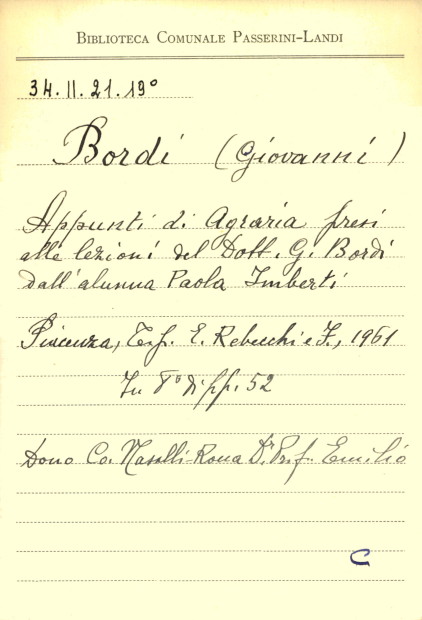 BIBLIOTECA COMUNALE PASSERINI-LANDI
34.II.21.19°
Bordi (Giovanni)
Appunti di Agraria presi
alle lezioni del Dott. G. Bordi
dall'alunna Paola Imberti
Piacenza, Tip. E. Rebecchi e F., 1961
In 8° di pp. 52
Dono Co. Nasalli-Rocca Dr Prof. Emilio
C